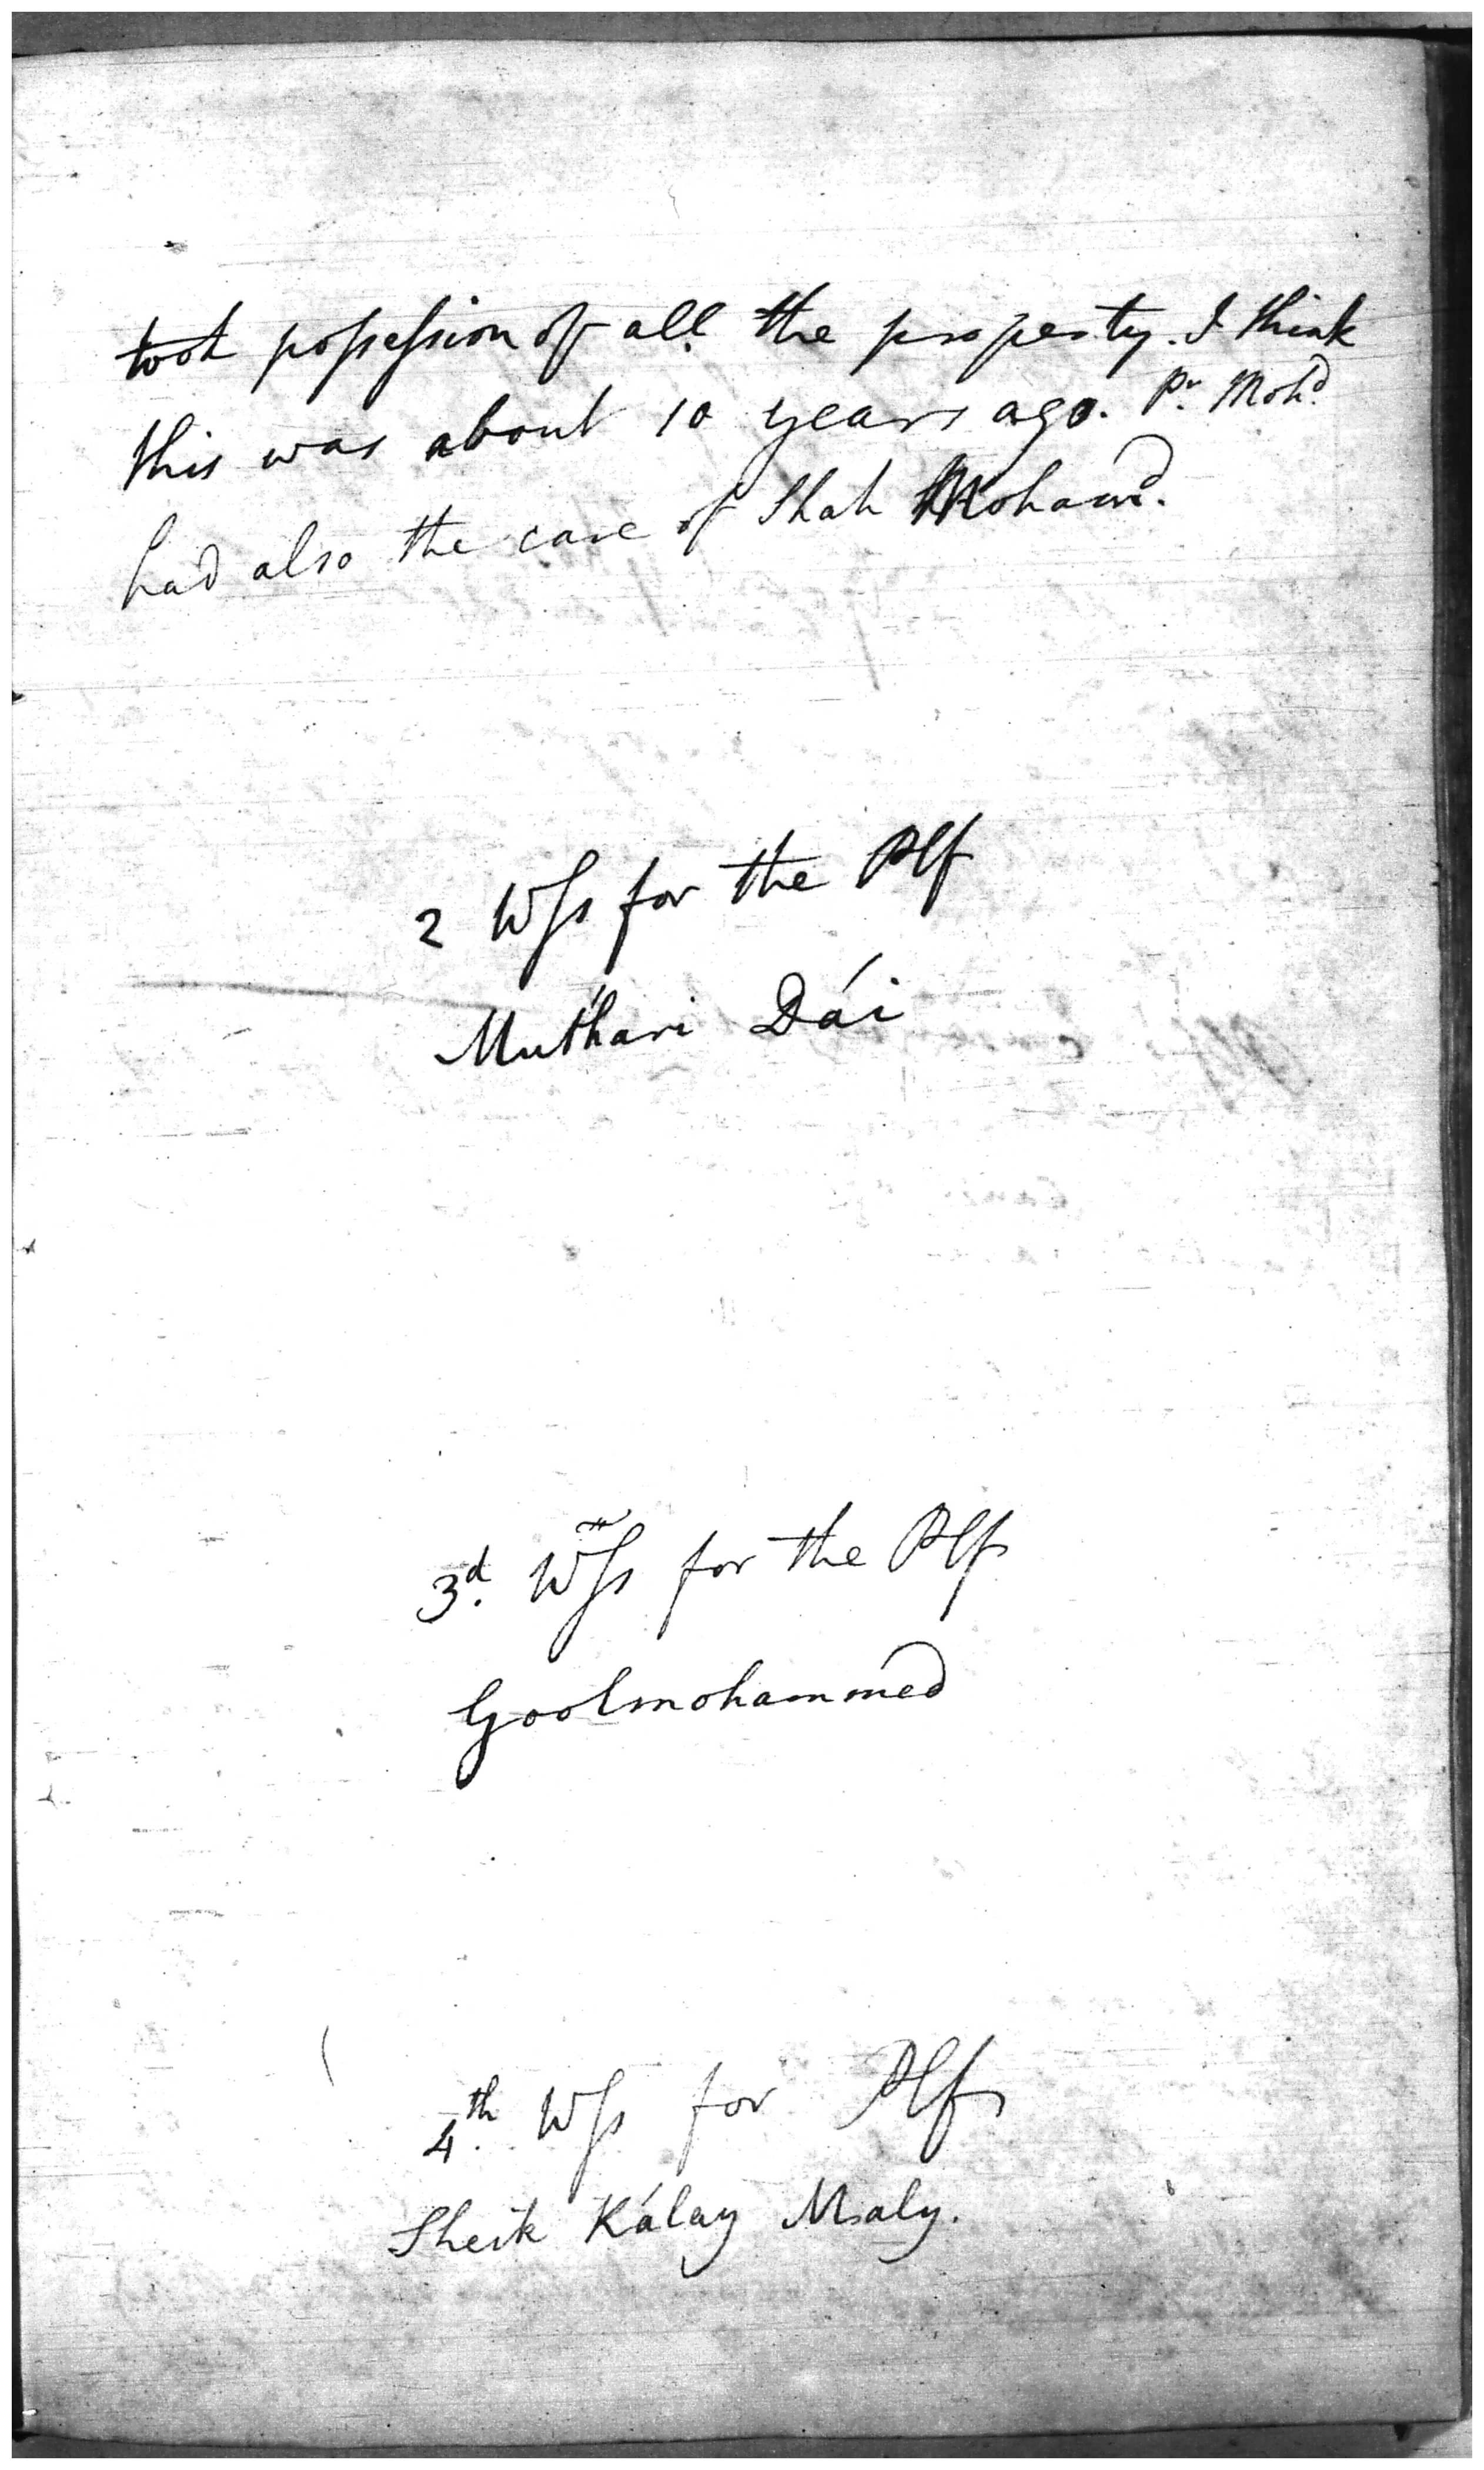 took possession of all the property. I think
this was about 10 years ago. Pr. Mohd.
had also the care of Shah Mohamd.
2 Wss for the Plf
Muthari Dái
3d. Wss for the Plf
Goolmohammed
4th. Wss for Plf
Sheik Kálay Maly.